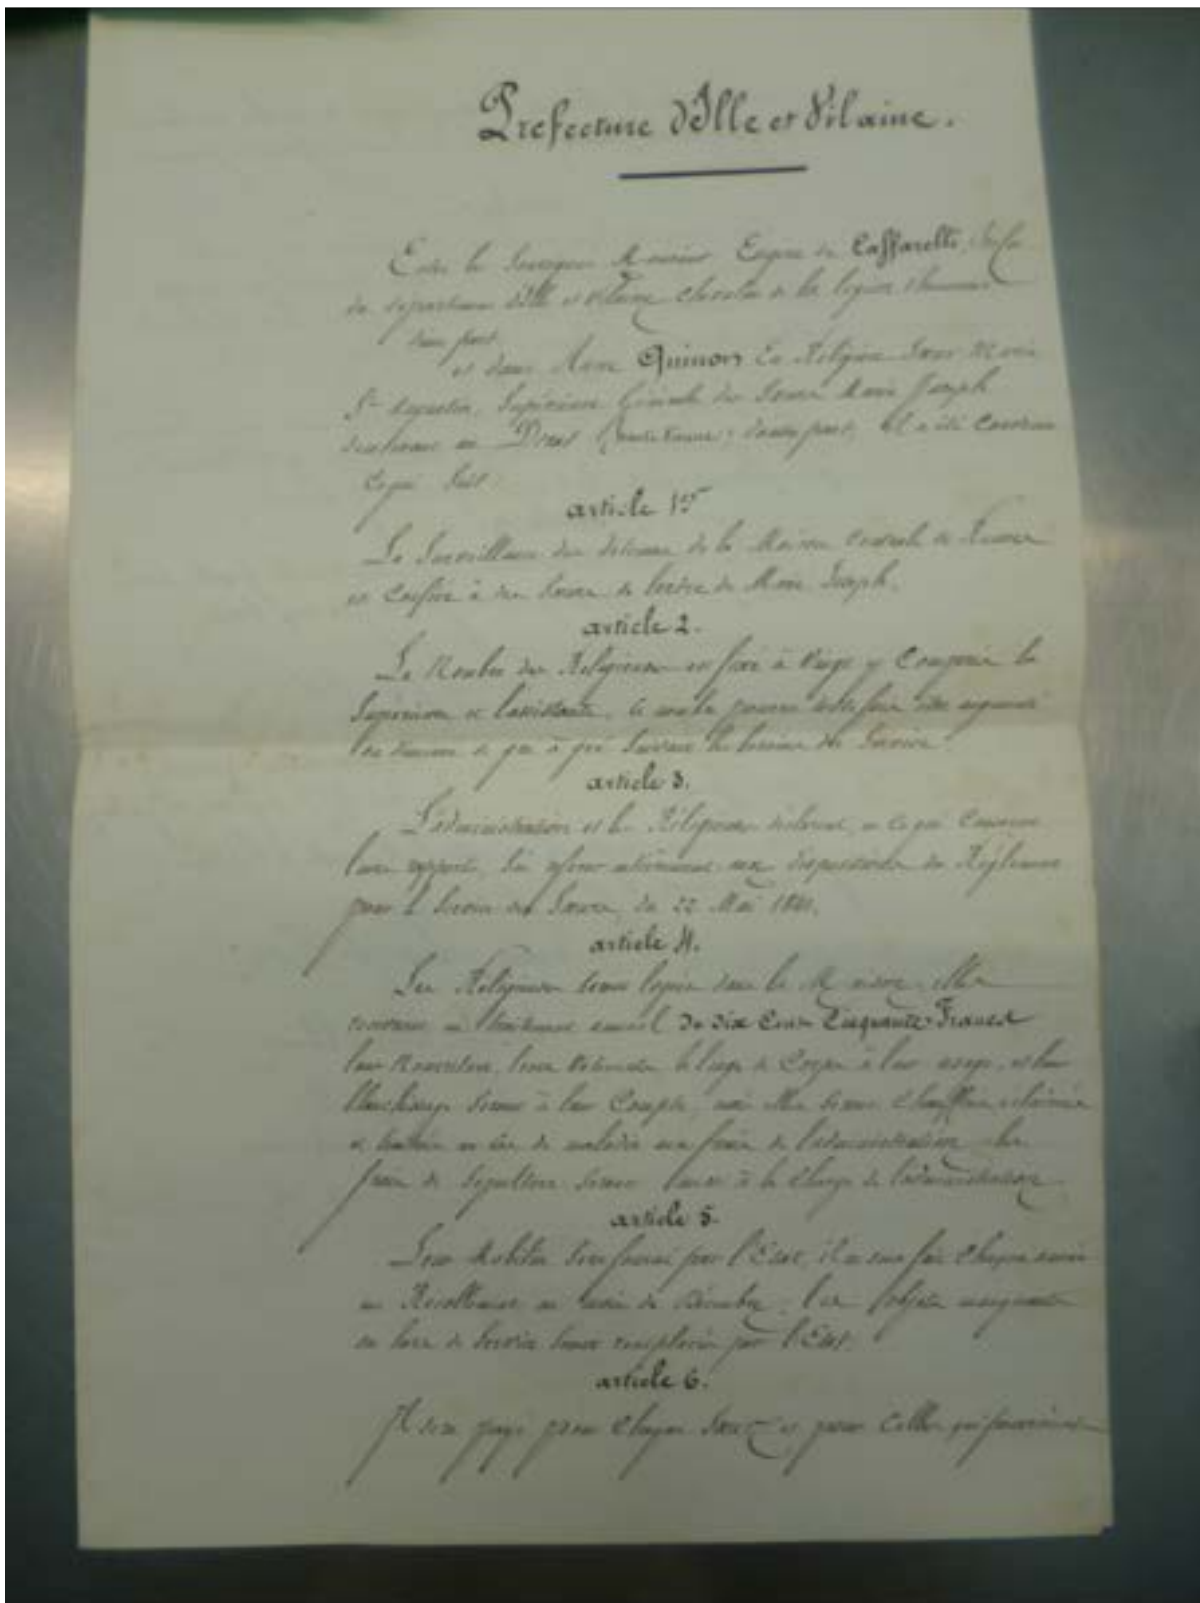 Préfecture d'Ille et Vilaine.
Entre le Monsieur Eugène de Caffarelli,
du département d'Ille et Vilaine Chevalier de la légion d'honneur
d'une part
et dame Anne Quinon En Religion Soeur Marie
St Augustin, Supérieure Générale des Soeurs Marie Joseph
demeurant au Dorat (haute Vienne) d'autre part, il a été Convenu
Ce qui Suit
article 1er
La Surveillance des détenues de la Maison Centrale de Rennes
est Confiée à des Soeurs de l'ordre de Marie Joseph.
article 2.
Le Nombre des Religieuses est fixé à Vingt y Compris la
Supérieure et l'assistante, ce nombre pourra toutefois être augmenté
ou diminué de gré à gré Suivant les besoins du Service.
article 3.
L'administration et les Religieuses déclarent, en ce qui Concerne
leurs rapports, Se référer aux dispositions du Règlement
pour le Service des Soeurs, du 22 Mai 1841.
article 4.
Les Religieuses Seront logées dans la Maison, elles
recevront un traitement annuel de Six Cent Cinquante Francs
leur Nourriture, leurs Vêtements le linge de Corps à leur usage, et leur
blanchissage Seront à leur Compte, mais elles Seront Chauffées, éclairées
et traitées en cas de maladie aux frais de l'administration les
frais de Sépulture Seront à la Charge de l'administration
article 5.
Leur Mobilier Sera fourni par l'Etat, il en sera fait Chaque année
un Recollement au mois de Décembre, les objets manquants
ou hors de Service Seront remplacés par l'Etat.
article 6.
Il Sera payé pour Chaque Soeur et pour Celles qui